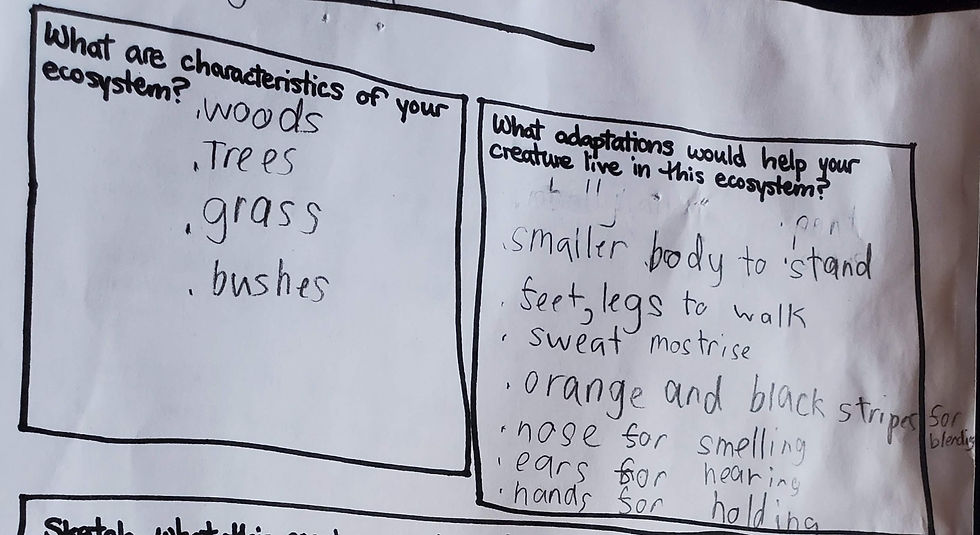 What are characteristics of your
ecosystem?
. woods
. Trees
. grass
. bushes
What adaptations would help your
creature live in this ecosystem?
. smaller body to stand
. feet, legs to walk
. sweat mostrise
. orange and black stripes for
blending
. nose for smelling
. ears for hearing
. hands for holding